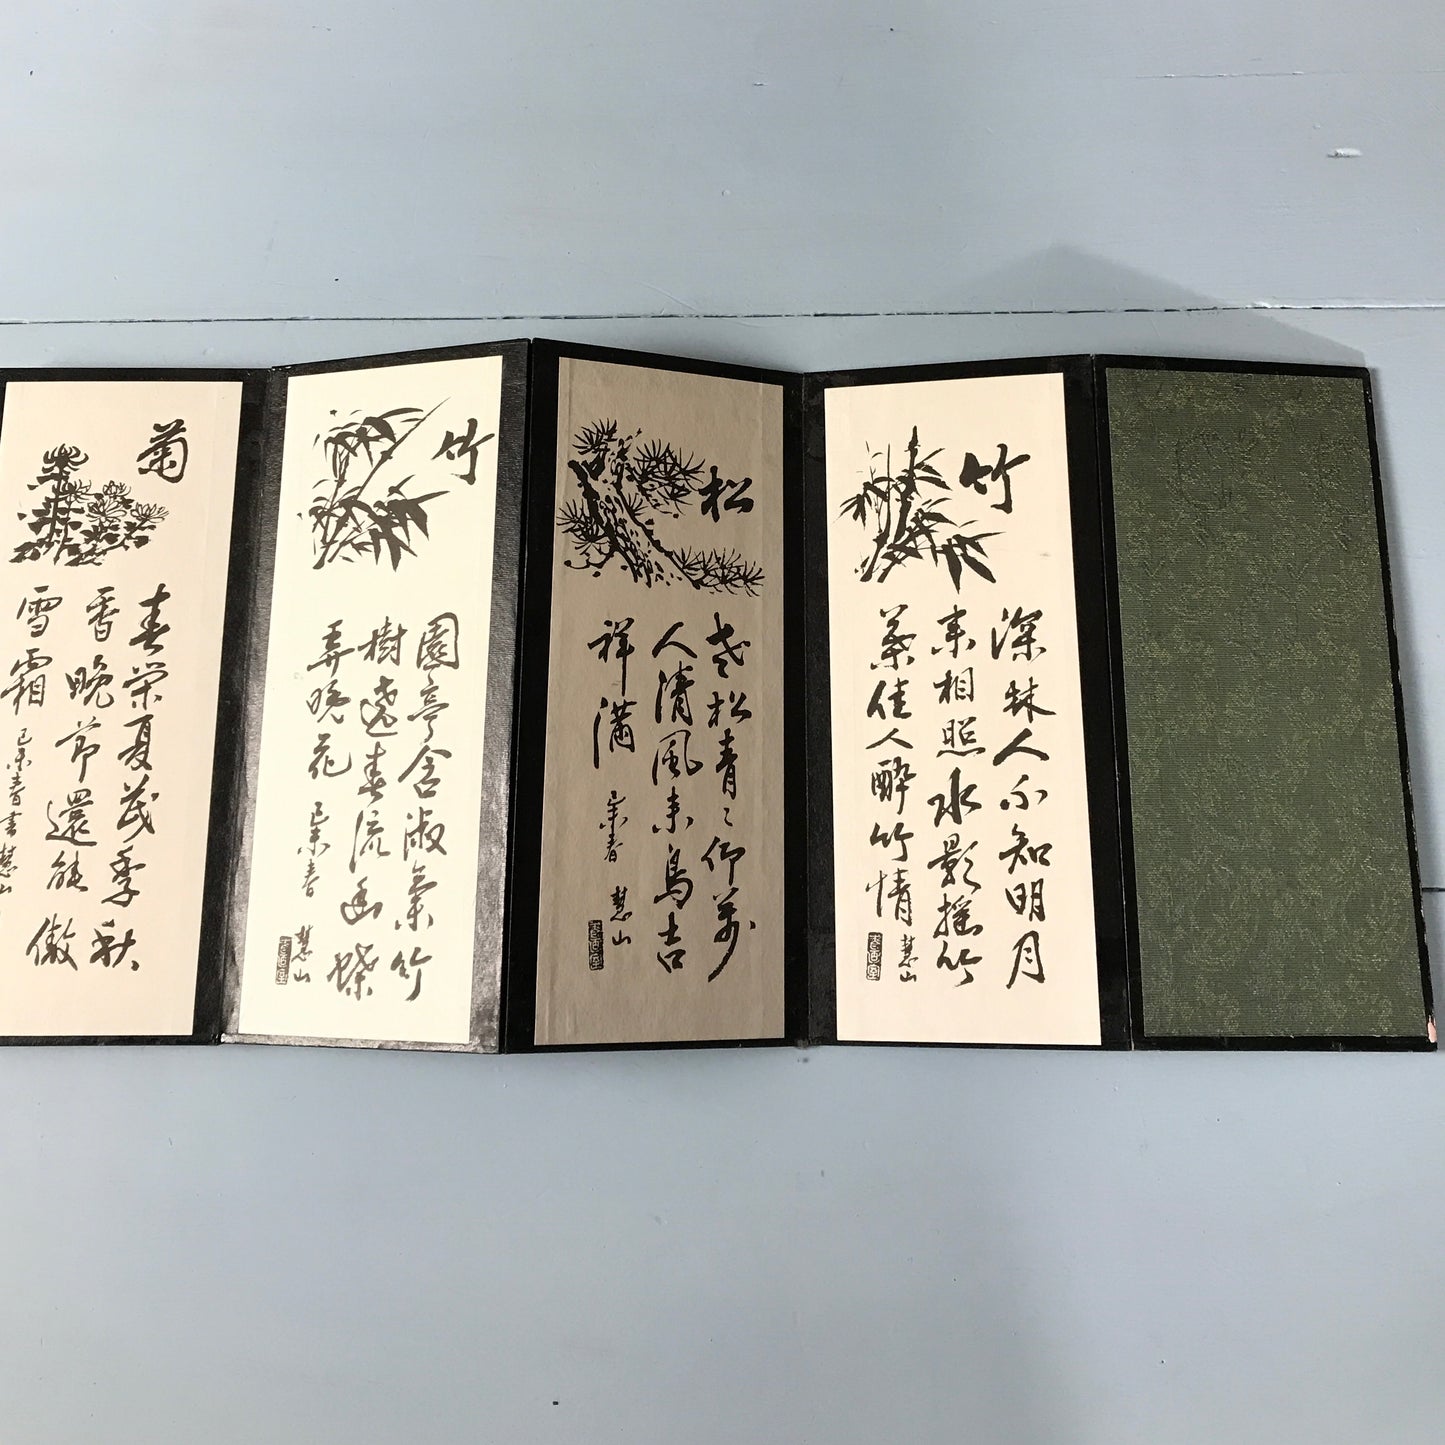 竹
深林人不知明月
来相照水影摇竹
葉佳人酔竹情
慧山
松
老松青〻仰萬
人清風来鳥吉
祥満
己未春
慧山
竹
園亭含淑氣竹
樹遶春流幽蝶
弄晩花
己未春
慧山
菊
春栄夏茂季秋
香晩節還能傲
雪霜
己未春書
慧山